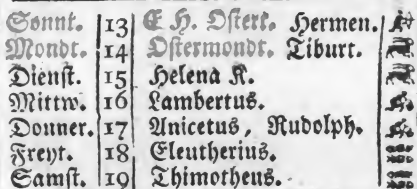 Sonnt. 13 E H. Ostert. Hermen.
Mondt. 14 Ostermondt. Tiburt.
Dienst. 15 Helena K.
Mittw. 16 Lambertus.
Donner. 17 Anicetus, Rudolph.
Freyt. 18 Eleutherius.
Samst. 19 Thimotheus.